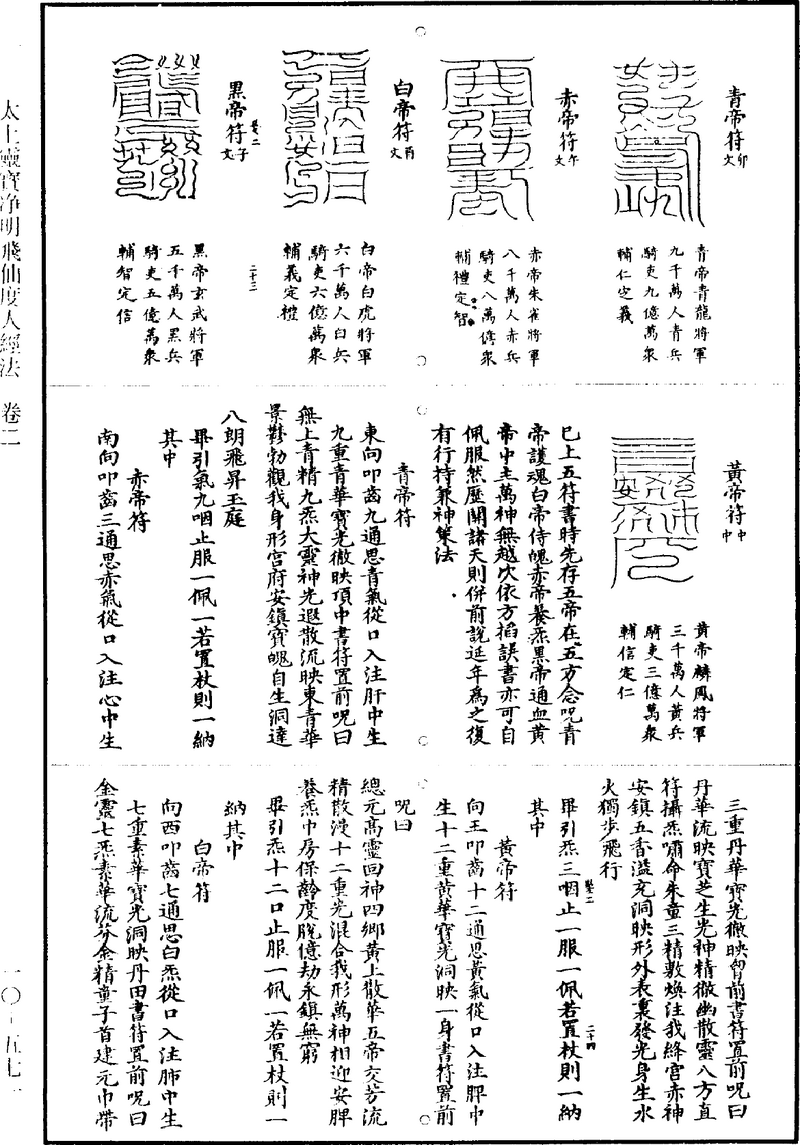 青帝符卯文
青帝青龍將軍
九千萬人青兵
騎吏九億萬衆
輔仁定義
赤帝符午文
赤帝朱雀將軍
八千萬人赤兵
騎吏八萬億衆
輔禮定智
白帝符酉文
白帝白虎將軍
六千萬人白兵
騎吏六億萬衆
輔義定禮
卷二
二十三
黑帝符子文
黑帝玄武將軍
五千萬人黑兵
騎吏五億萬衆
輔智定信
黃帝符中中
黃帝麟鳳將軍
三千萬人黃兵
騎吏三億萬衆
輔信定仁
已上五符書時先存五帝在五方念呪青
帝護魂白帝侍魄赤帝養炁黑帝通血黃
帝中主萬神無越次依方掐訣書亦可自
佩服然歷關諸天則併前說延年爲之復
有行持兼神策法
青帝符
東向叩齒九通思青氣從口入注肝中生
九重青華寶光徹映頂中書符置前呪曰
無上青精九炁大靈神光遐散流映東青華
景欝勃觀我身形宮府安鎮寶魄自生洞達
八朗飛昇玉庭
畢引氣九咽止服一佩一若置杖則一納
其中
赤帝符
南向叩齒三通思赤氣從口入注心中生
三重丹華寶光徹映胷前書符置前呪曰
丹華流映寶芝生光神精徹幽散靈八方直
符攝炁嘯命朱童三精敷煥注我絳宮赤神
安鎮五香溢充洞映形外表裏發光身生水
火獨步飛行
卷二
二十四
畢引炁三咽止一服一佩若置杖則一納
其中
黃帝符
向王叩齒十二通思黃氣從口入注脾中
生十二重黃華寶光洞映一身書符置前
呪曰
總元高靈回神四鄉黃上散華五帝交芳流
精散漫十二重光混合我形萬神相迎安脾
養炁中房保齡度脫億劫永鎮無窮
畢引炁十二口止服一佩一若置杖則一
納其中
白帝符
向西叩齒七通思白炁從口入注肺中生
七重素華寶光洞映丹田書符置前呪曰
金靈七炁素華流芬金精童子首建元巾帶
太上靈寶净明飛仙度人經法 卷二
一〇-五七一